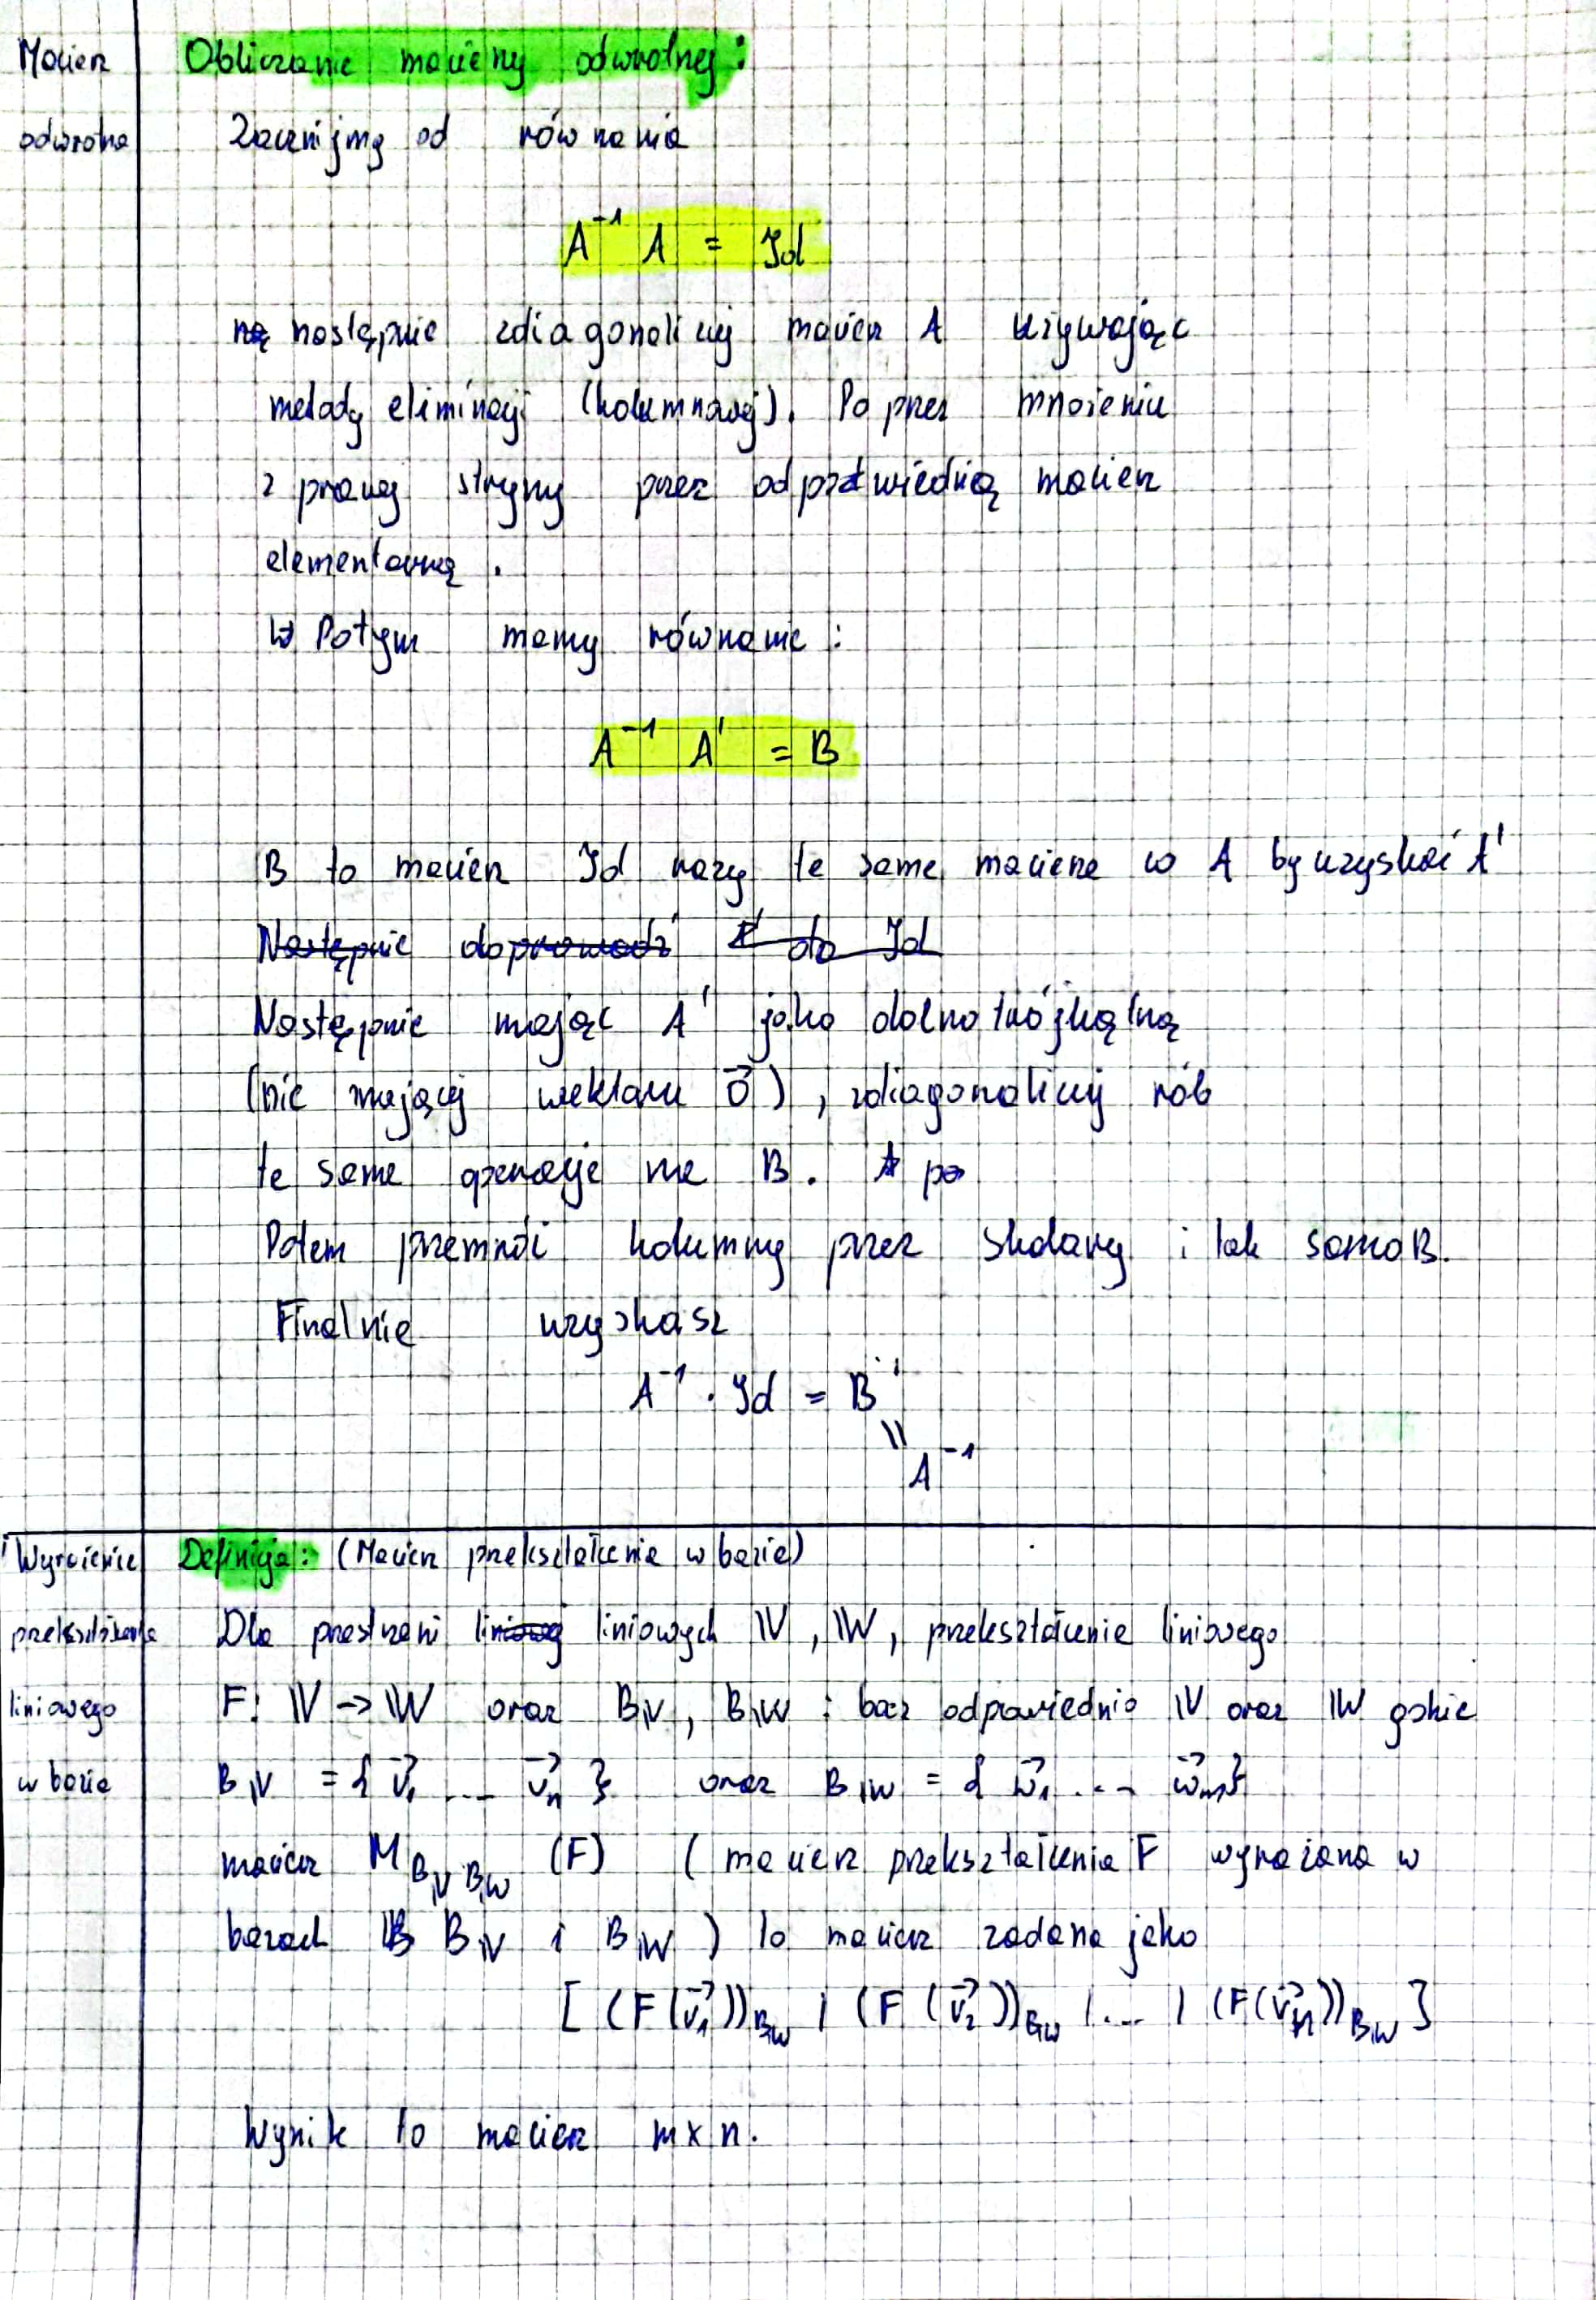 Macierz
odwrotna
Obliczanie macierzy odwrotnej:
Zacznijmy od równania
A⁻¹ A = Id
następnie zdiagonalizuj macierz A używając
metody eliminacji (kolumnowej). Poprzez mnożenie
z prawej strony przez odpowiednią macierz
elementarną.
Potym mamy równanie:
A⁻¹ A' = B
B to macierz Id razy te same macierze co A by uzyskać A'
Następnie doprowadź A' do Id
Następnie mając A' jako dolnotrójkątną
(nie mającej wektora 0⃗), zdiagonalizuj rób
te same operacje na B. A po
Potem przemnóż kolumny przez skalary i tak samo B.
Finalnie uzyskasz
A⁻¹ · Id = B'
\\
A⁻¹
Wyrażenie
przekształcenia
liniowego
w bazie
Definicja: (Macierz przekształcenia w bazie)
Dla przestrzeni liniowej liniowych V, W, przekształcenie liniowego
F: V -> W oraz B_V, B_W : baz odpowiednio V oraz W gdzie
B_V = { v⃗₁ ... v⃗ₙ } oraz B_W = { w⃗₁ ... w⃗ₘ}
macierz M_{B_V B_W} (F) (macierz przekształcenia F wyrażana w
bazach B_V i B_W ) to macierz zadana jako
[ (F(v⃗₁))_{B_W} | (F (v⃗₂))_{B_W} | ... | (F(v⃗ₙ))_{B_W} ]
Wynik to macierz m x n.